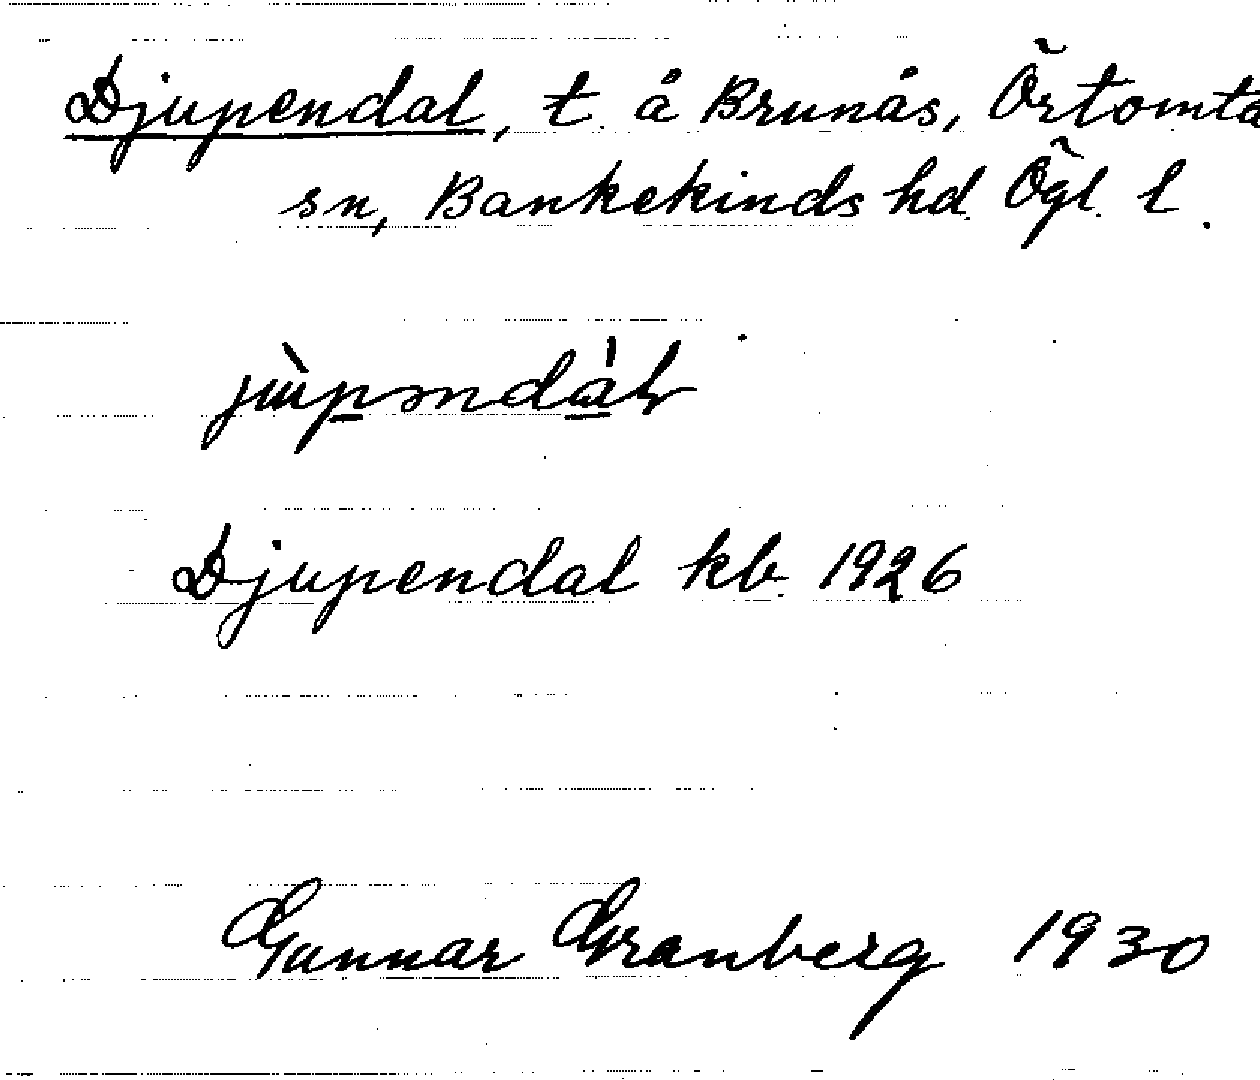 Djupendal, t. å Brunås, Örtomta
sn, Bankekinds hd. Ögl. l.
Djupendal kb. 1926
Gunnar Granberg 1930